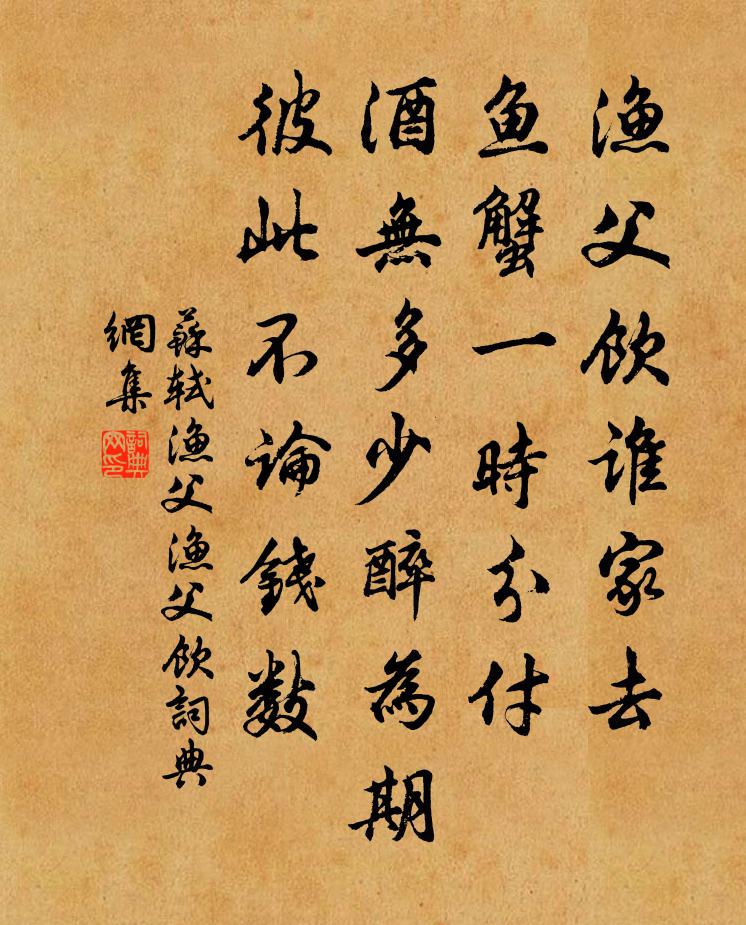 渔父饮谁家去
鱼蟹一時分付
酒無多少醉為期
彼此不論錢数
蘇軾渔父渔父饮詞典
網集
詞典
网印